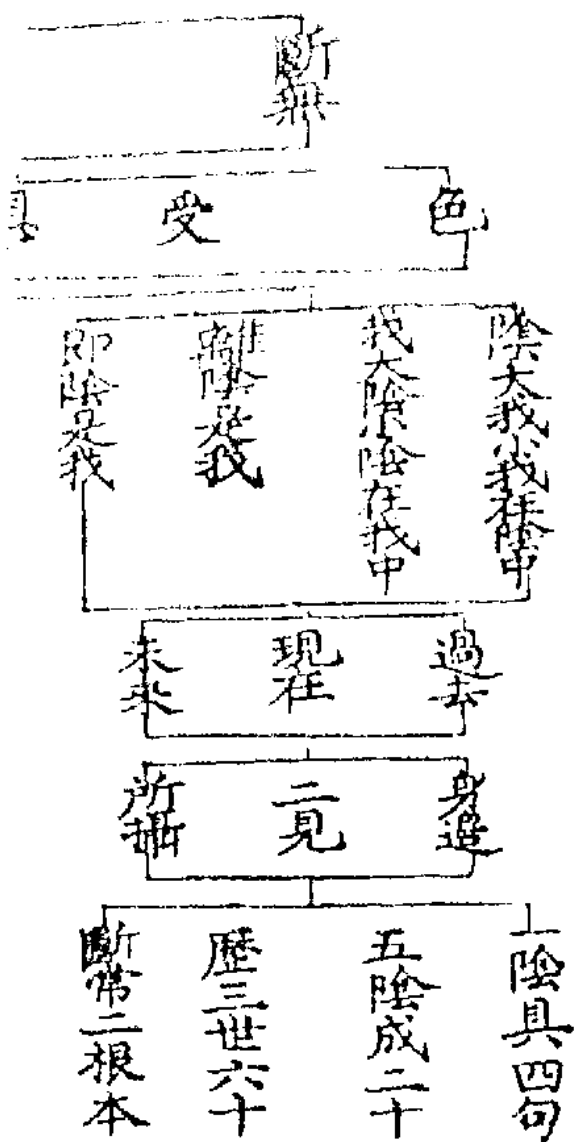 斷無
色
受
陰大我小我在陰中
我大陰小陰在我中
離陰是我
即陰是我
過去
現在
未來
身邊
二見
所攝
一陰具四句
五陰成二十
歷三世六十
斷常二根本